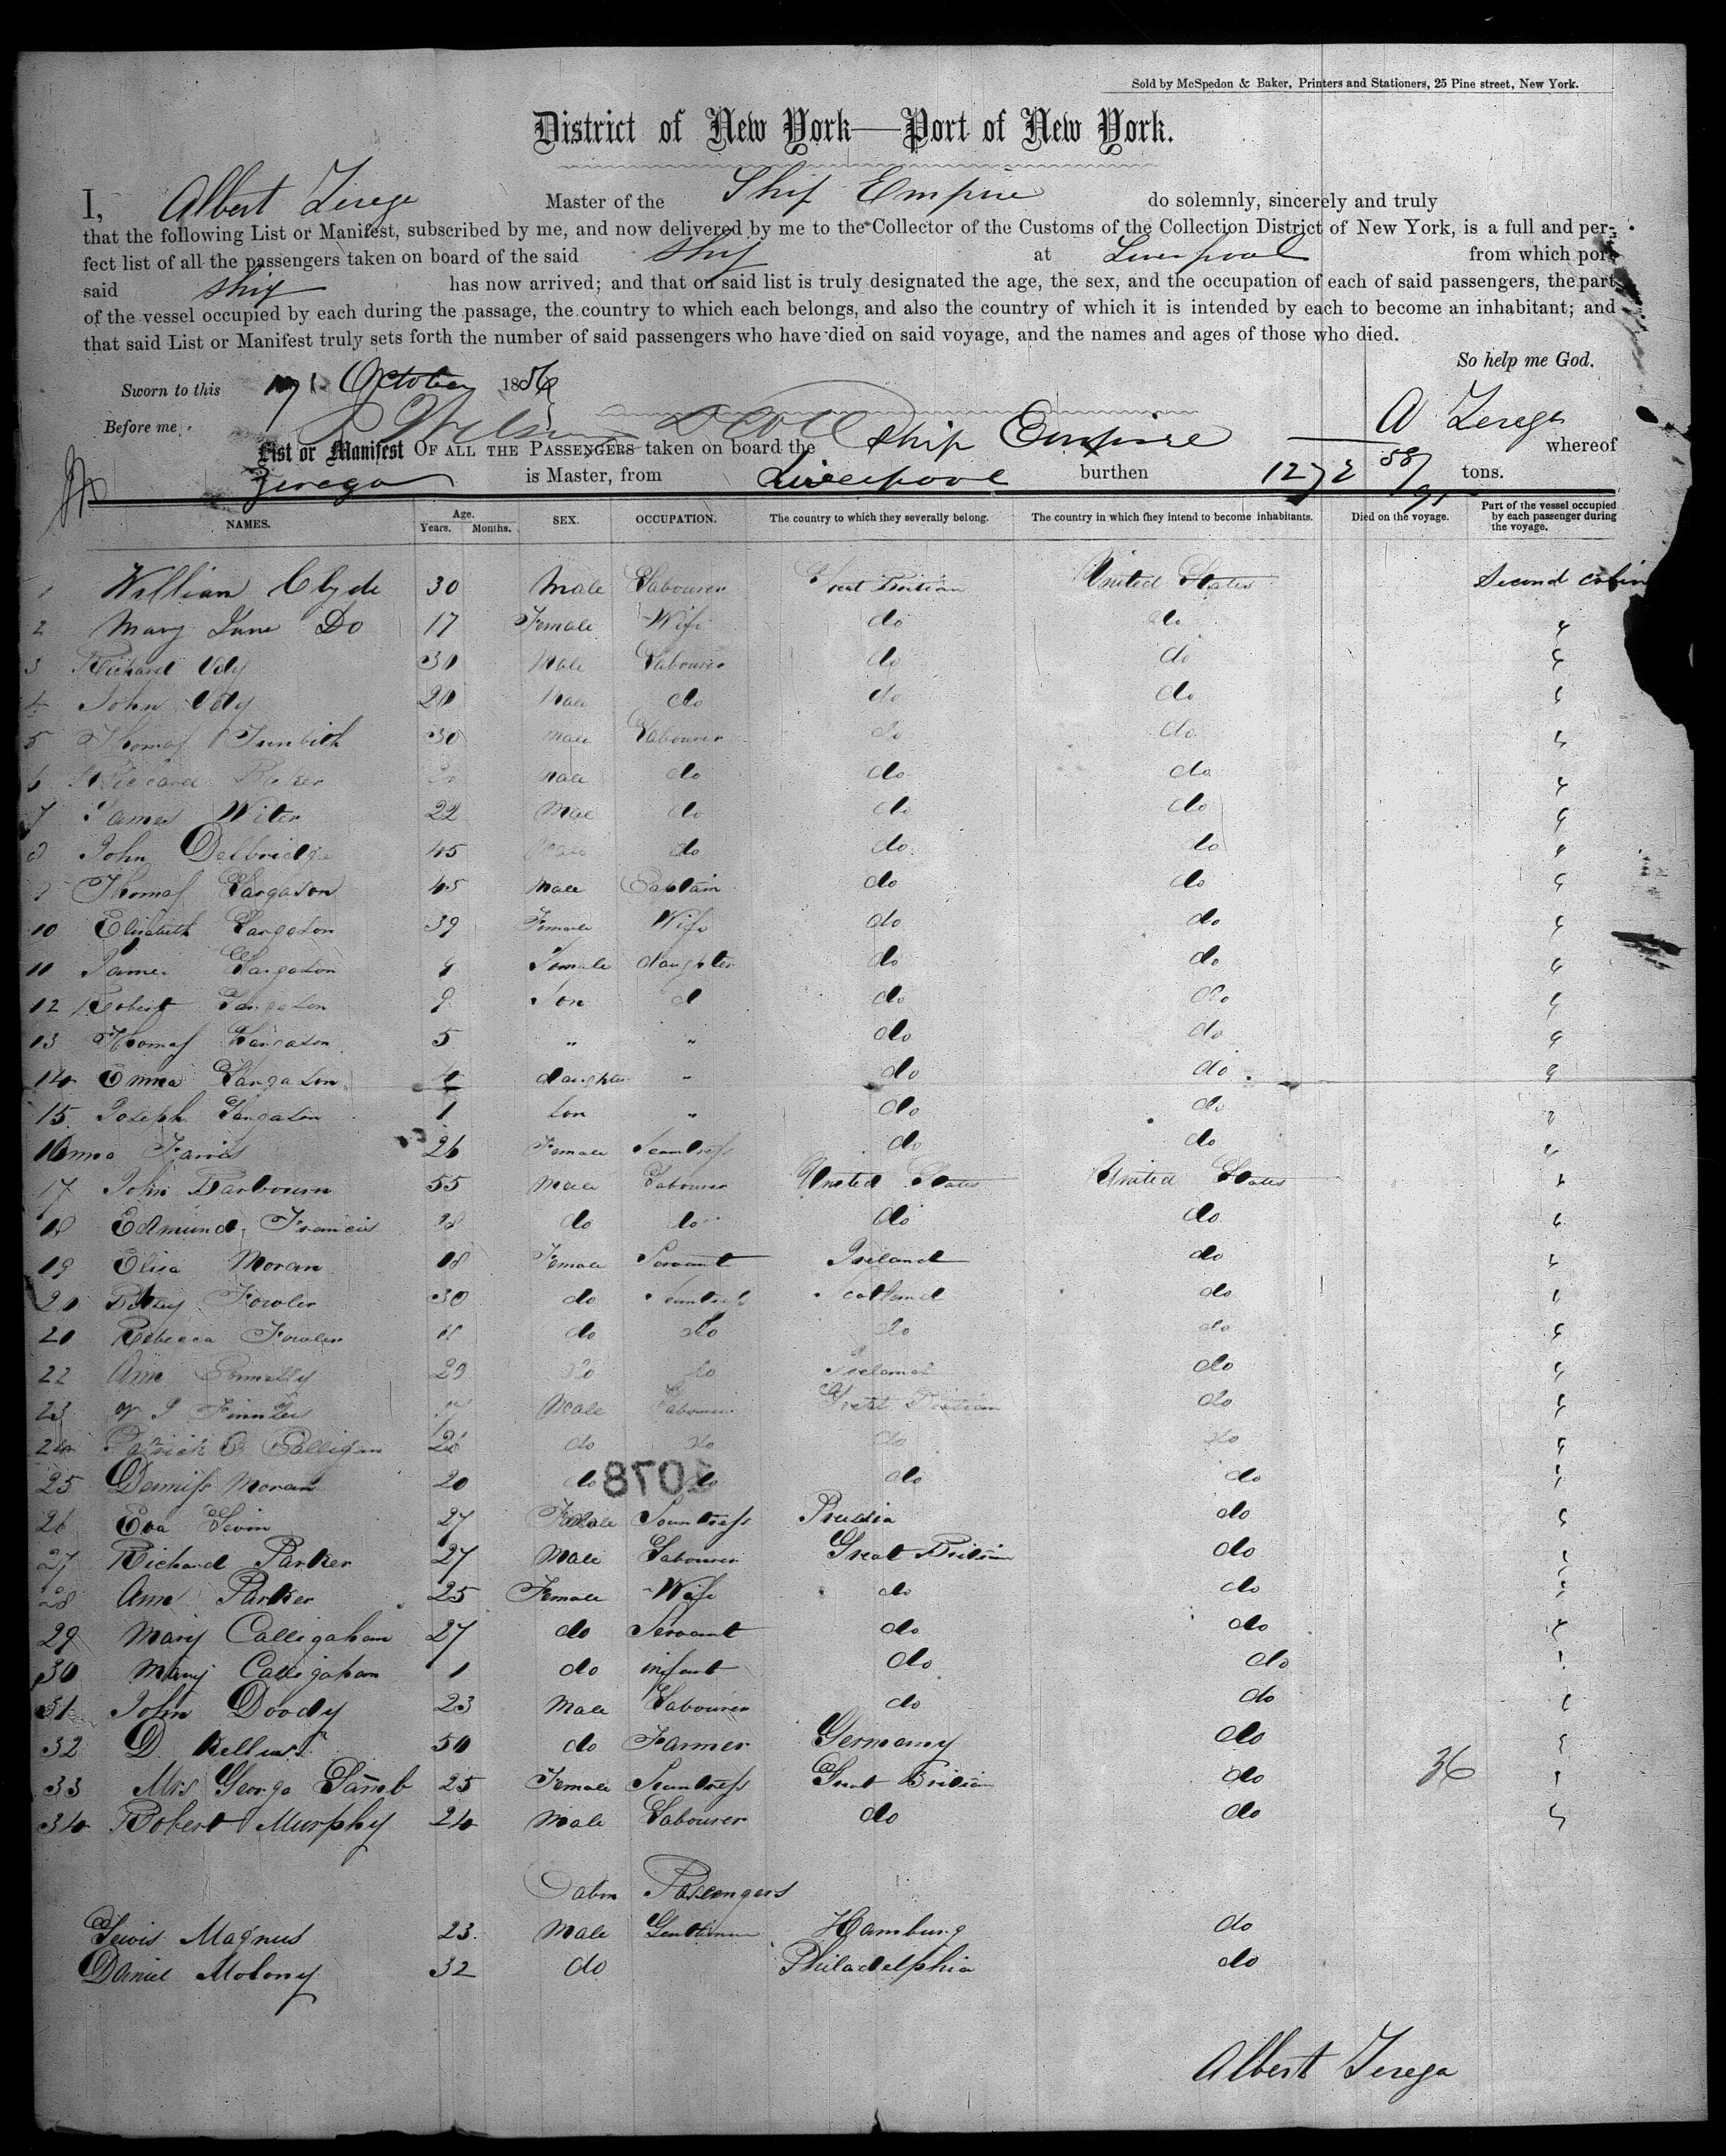 Sold by McSpedon & Baker, Printers and Stationers, 25 Pine street, New York.
District of New York—Port of New York.
I, Albert Zerega Master of the Ship Empire do solemnly, sincerely and truly
that the following List or Manifest, subscribed by me, and now delivered by me to the Collector of the Customs of the Collection District of New York, is a full and per-
fect list of all the passengers taken on board of the said Ship at Liverpool from which port
said Ship has now arrived; and that on said list is truly designated the age, the sex, and the occupation of each of said passengers, the part
of the vessel occupied by each during the passage, the country to which each belongs, and also the country of which it is intended by each to become an inhabitant; and
that said List or Manifest truly sets forth the number of said passengers who have died on said voyage, and the names and ages of those who died.
So help me God.
Sworn to this October 1856
Before me A Zerega
List or Manifest OF ALL THE PASSENGERS taken on board the Ship Empire whereof
Zerega is Master, from Liverpool burthen 1272 tons.
NAMES. Age. Years. Months. SEX. OCCUPATION. The country to which they severally belong. The country in which they intend to become inhabitants. Died on the voyage. Part of the vessel occupied by each passenger during the voyage.
1 William Clyde 30 Male Labourer Great Britian United States Second cabin
2 Mary Jane Do 17 Female Wife do do "
3 Richard Udy 30 Male Labourer do do "
4 John Udy 20 Male do do do "
5 Thomas 30 Male Labourer do do "
6 Male do do do "
7 James Witer 22 Male do do do "
8 John Delbridge 45 Male do do do "
9 Thomas Sargason 45 Male Captain do do "
10 Elizabeth Sargason 39 Female Wife do do "
11 James Sargason 9 Female daughter do do "
12 Robert Sargason Son d do do "
13 Thomas Sargason 5 " " do do "
14 Emma Sargason 4 daughter " do do "
15 Joseph Sargason 1 Son " do do "
16 Anna Farris 26 Female Seamtress do do "
17 John Barbourn 55 Male Labourer United States United States "
18 Edmund Francis do do do do "
19 Elisa Moran 18 Female Servant Ireland do "
20 Betsy Fowler 30 do Seamtress Scotland do "
20 Rebecca Fowler do do do do "
22 Ann Connelly 20 do do Ireland do "
23 Male Labourer Great Britian do "
24 Patrick Galligan do do do do "
25 Denniss Moran 20 do do do do "
8078
26 Eva Levin 27 Female Seamtress Prussia do "
27 Richard Parker 27 Male Labourer Great Britian do "
28 Ann Parker 25 Female Wife do do "
29 Mary Calligaham 27 do Servant do do "
30 Mary Calligaham 1 do infant do do "
31 John Doody 23 Male Labourer do do "
32 D. 50 do Farmer Germany do "
33 Mrs George Lamb 25 Female Seamtress Great Britian do 36 "
34 Robert Murphy 24 Male Labourer do do "
Cabin Passengers
Lewis Magnus 23 Male Gentleman Hamburg do
Daniel Molony 32 do Philadelphia do
Albert Zerega